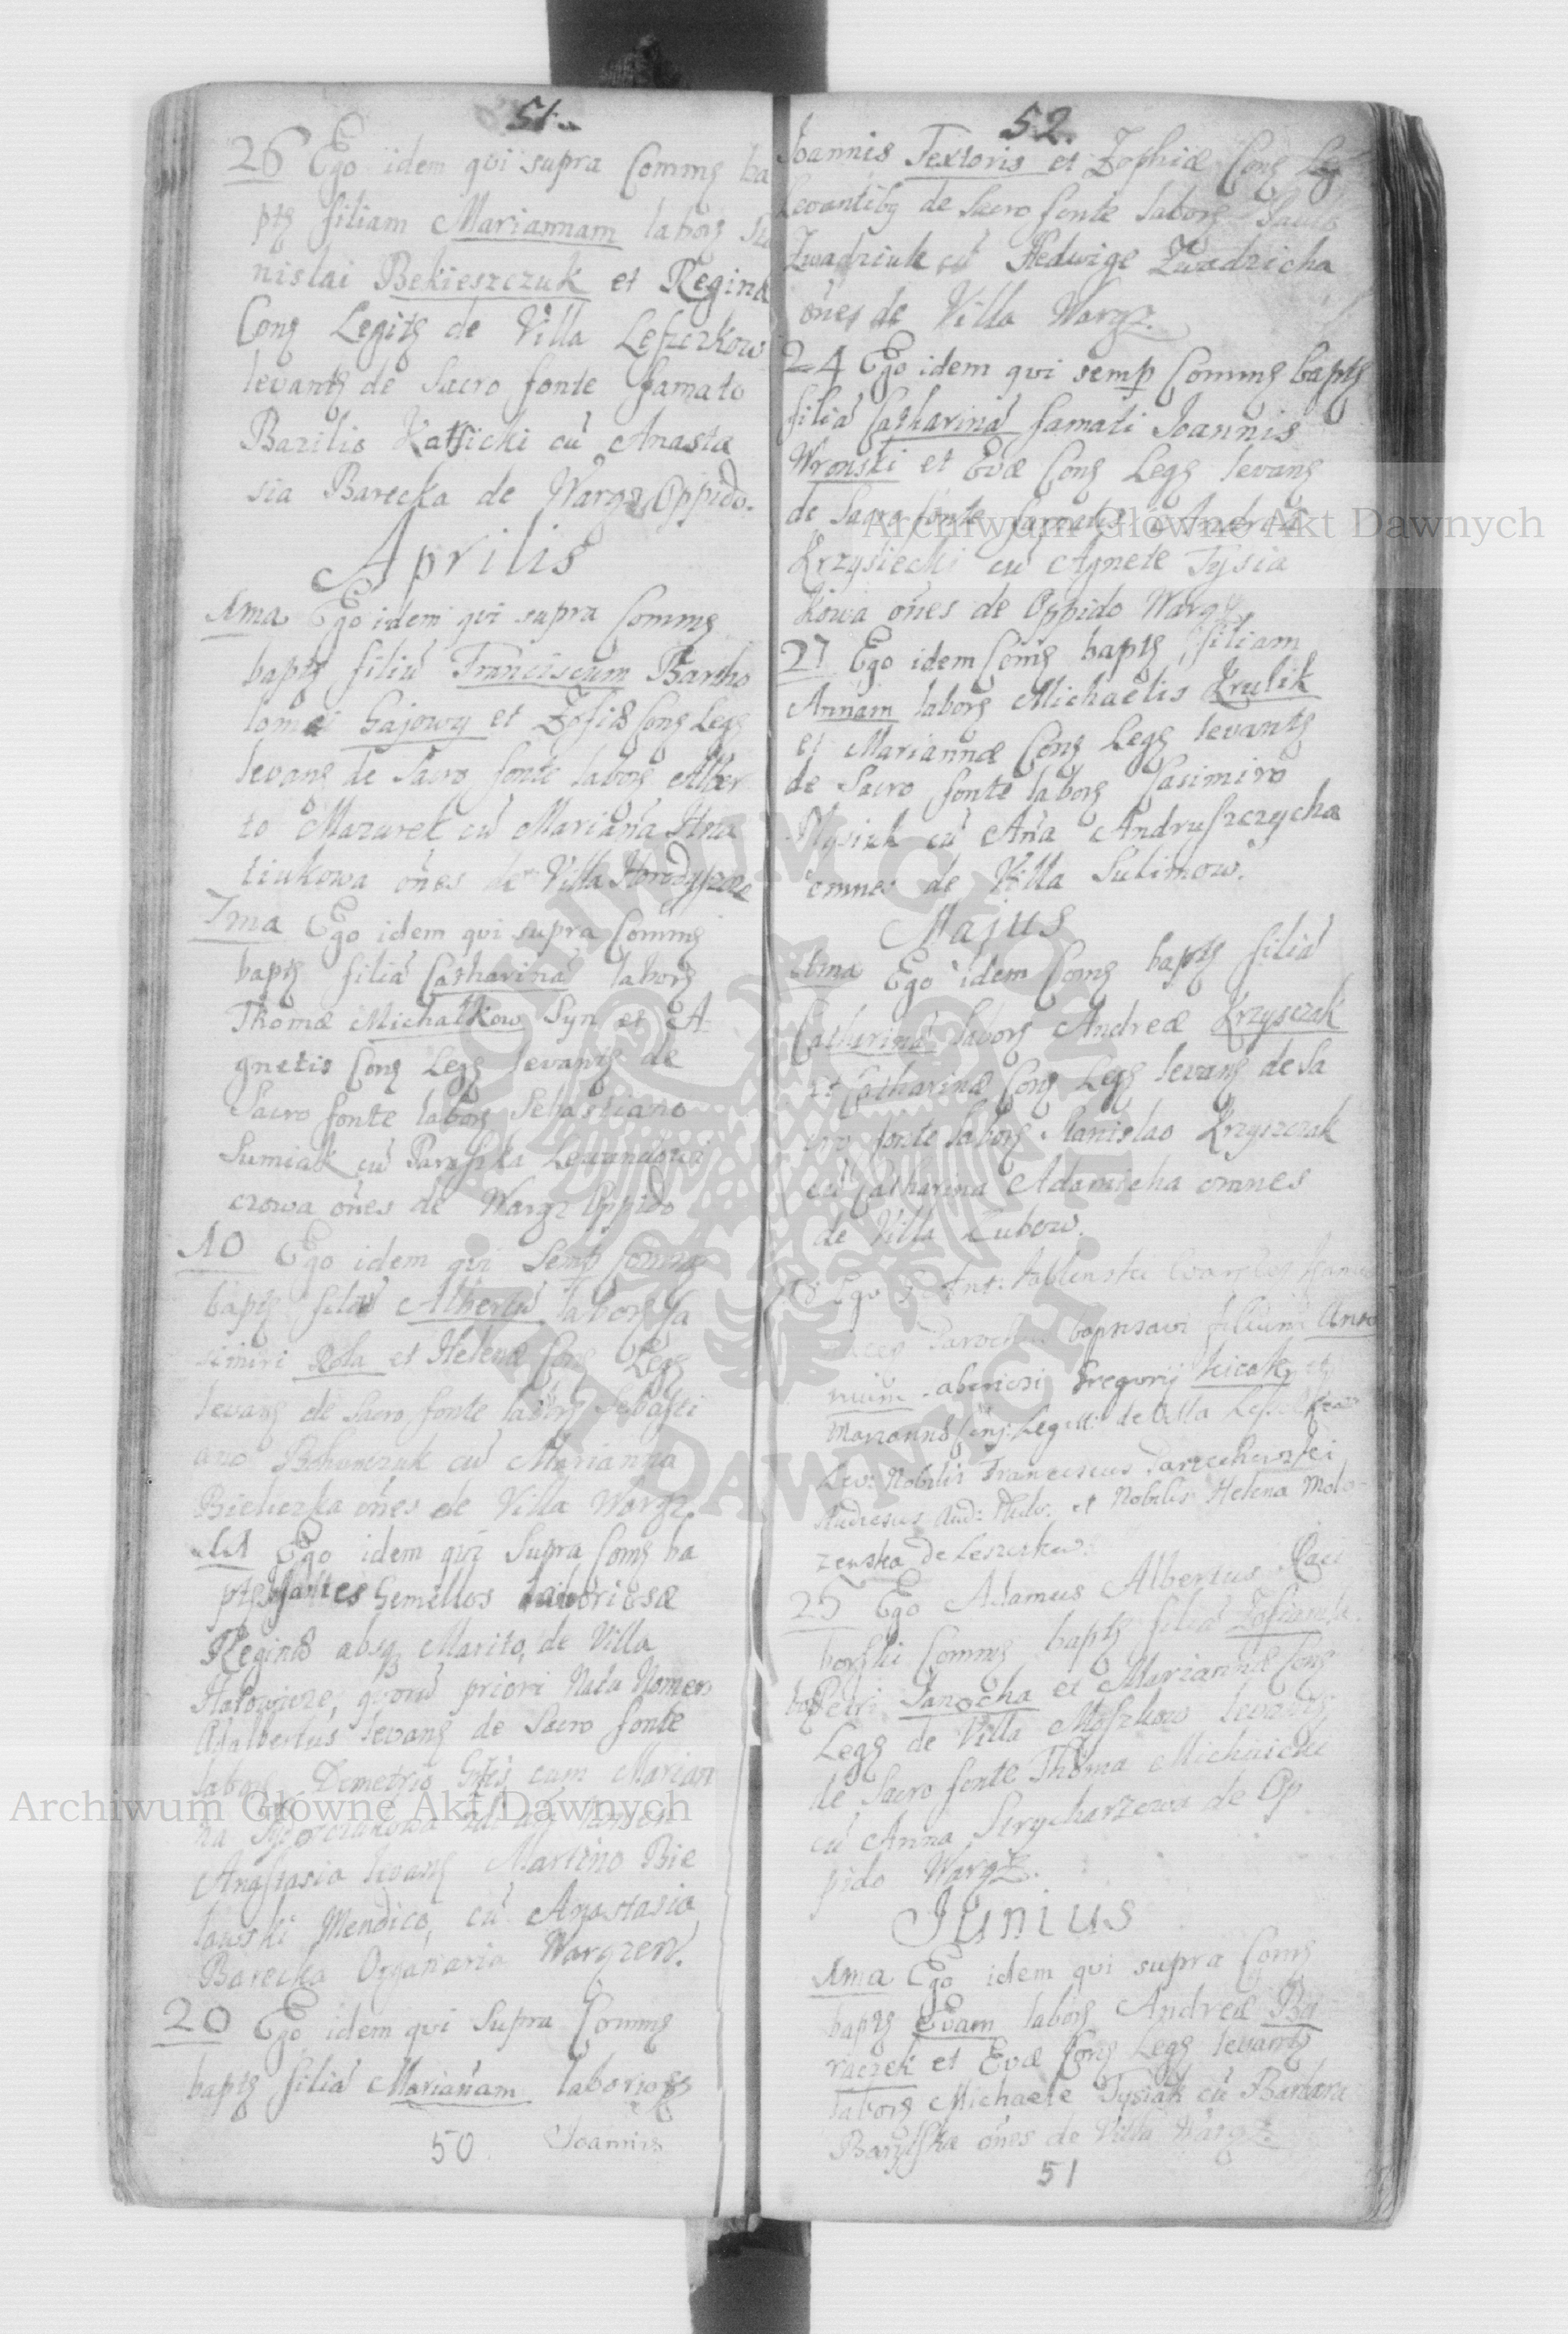 51.
26 Ego idem qui supra Commg ba
ptg filiam Mariannam laborg Sta
nislai Bekieszczuk et Reginæ
Cong Legitg de Villa Leszczkow
levantg de Sacro fonte famato
Bazilio Kassicki cu Anasta
sia Barecka de Waręz Oppido.
Aprilis
1ma Ego idem qui supra Commg
baptg filiu Franciscum Bartho
lomei Gajowy et Zofiæ Cong Legg
levang de Sacro fonte laborg Alber
to Mazurek cu Mariana Hna
tiukowa ones de Villa Horodyszcze
7ma Ego idem qui supra Commg
baptg filia Catharina laborg
Thomæ Michałkow Syn et A
gnetis Cong Legg levantg de
Sacro fonte laborg Sebastiano
Sumiak cu Paraszka Lewandowi
czowa ones de Waręz Oppido
10 Ego idem qui semp Commg
baptg filiu Albertu laborg Ca
simiri Rola et Helenæ Cong Legg
levang de Sacro fonte laborg Sebasti
ano cu Marianna
ones de Villa Waręz.
11 Ego idem qui Supra Comg ba
ptg Gemellos laboriosæ
Reginæ absq Marito, de Villa
quoru priori Natu Nomen
Adalbertus levang de Sacro fonte
laborg Demetrio cum Marian
na
Anastasia levang Martino Bie
lawski Mendico, cu Anastasia
Barecka Organaria Warężen.
20 Ego idem qui Supra Commg
baptg filia Marianam laboriosg
50 Joannis
52.
Joannis Textoris et Zophiæ Cong Leg
Levantibg de Sacro fonte laborg Paulo
Zwadziuk cu Hedwige Zwadzicha
ones de Villa Waręz.
24 Ego idem qui semp Commg baptg
filia Catharina famati Joannis
Wronski et Evæ Cong Legg levang
de Sacro fonte famatis Andrea
Krzysiecki cu Agnete Tysia
kowa ones de Oppido Waręz
27 Ego idem Comg baptg filiam
Annam laborg Michaelis Krulik
et Mariannæ Cong Legg levantg
de Sacro fonte laborg Casimiro
cu Ana Andruszczycha
omnes de Villa Sulimow.
Majus
1ma Ego idem Comg baptg filia
Catharina laborg Andreæ Krzysczak
et Catharinæ Cong Legg levang de Sa
cro fonte laborg Stanislao Krzyszczak
cu Catharina Adamicha omnes
de Villa Lubow.
Ego Ant:
baptisavi filium Anto
nium Laboriosi Gregorij Kicak et
Mariannæ Conj: Legitt: de Villa
Lev: Nobilis Franciscus
et Nobilis Helena Molo-
zenska de Leszczkow.
25 Ego Adamus Albertus Raci
borski Commg baptg filia Zofiam la
bog Petri Janocha et Mariannæ Cong
Legg de Villa Moszkow levantg
de Sacro fonte Thoma
cu Anna de Op
pido Waręz.
Junius
1ma Ego idem qui supra Comg
baptg Evam laborg Andreæ Bu
raczek et Evæ Cong Legg levantg
laborg Michaele Tysiak cu Barbara
ones de Villa Waręz.
51
Archiwum Główne Akt Dawnych
Archiwum Główne Akt Dawnych
ARCHIWUM GŁÓWNE AKT DAWNYCH